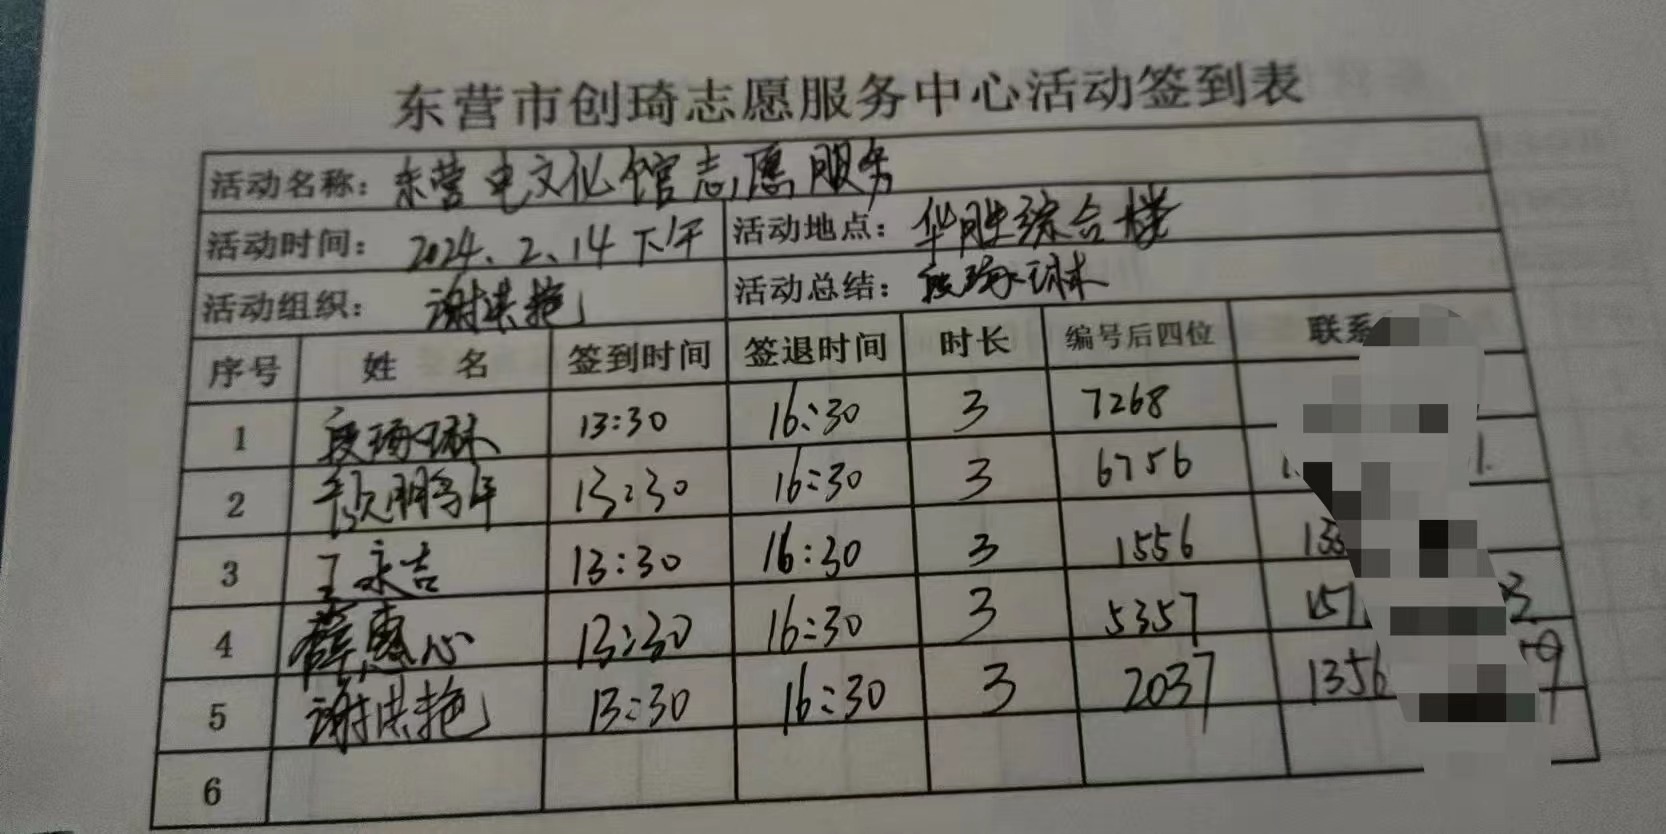 东营市创琦志愿服务中心活动签到表
活动名称：东营电文化馆志愿服务
活动时间：2024.2.14下午 活动地点：华胜综合楼
活动组织：谢洪艳 活动总结：段琢琳
序号 姓名 签到时间 签退时间 时长 编号后四位 联系
1 段琢琳 13:30 16:30 3 7268
2 13:30 16:30 3 6756
3 王永吉 13:30 16:30 3 1556
4 薛惠心 13:30 16:30 3 5357
5 谢洪艳 13:30 16:30 3 2037 1356
6